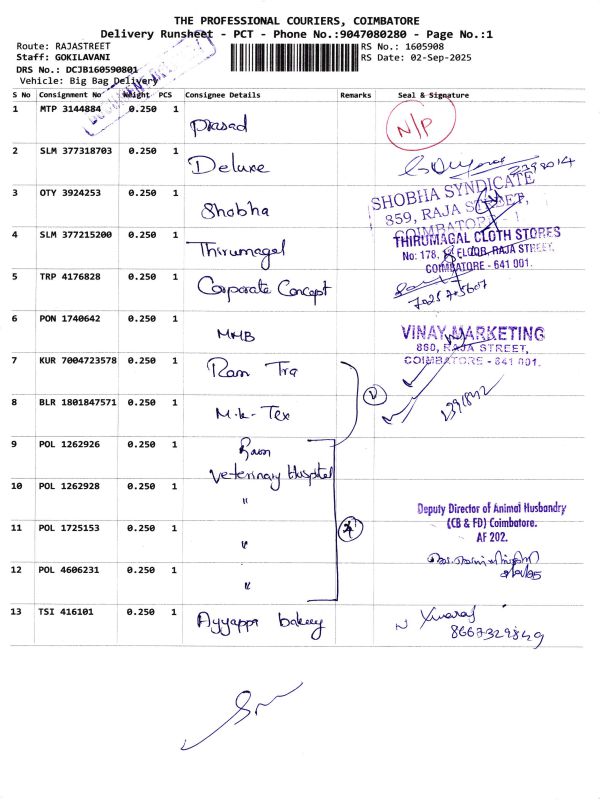 THE PROFESSIONAL COURIERS, COIMBATORE
Delivery Runsheet - PCT - Phone No.:9047080280 - Page No.:1
Route: RAJASTREET
RS No.: 1605908
Staff: GOKILAVANI
RS Date: 02-Sep-2025
DRS No.: DCJB160590801
Vehicle: Big Bag Delivery
S No Consignment No Weight PCS Consignee Details Remarks Seal & Signature
1 MTP 3144884 0.250 1 Prasad N/P
2 SLM 377318703 0.250 1 Deluxe
3 OTY 3924253 0.250 1 Shobha
SHOBHA SYNDICATE
859, RAJA STREET,
COIMBATORE - 1
4 SLM 377215200 0.250 1 Thirumagal
THIRUMAGAL CLOTH STORES
No: 178, FLOOR, RAJA STREET,
COIMBATORE - 641 001.
5 TRP 4176828 0.250 1 Corporate Concept
6 PON 1740642 0.250 1 MMB
VINAY MARKETING
860, RAJA STREET,
COIMBATORE - 641 001.
7 KUR 7004723578 0.250 1 Ram Tra
8 BLR 1801847571 0.250 1 M.k- Tex
9 POL 1262926 0.250 1 Ram
Veterinary Hospital
10 POL 1262928 0.250 1 "
Deputy Director of Animal Husbandry
(CB & FD) Coimbatore.
AF 202.
11 POL 1725153 0.250 1 "
12 POL 4606231 0.250 1 "
13 TSI 416101 0.250 1 Ayyappa bakery
8667329849